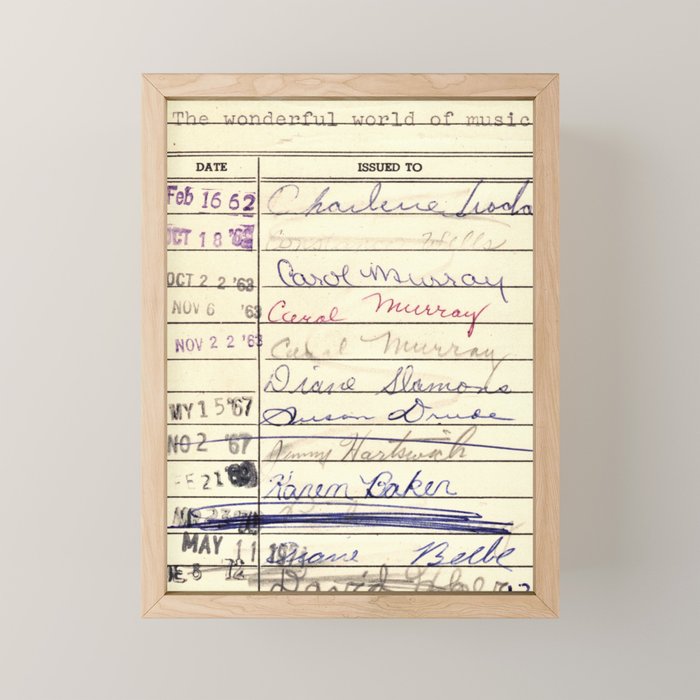 The wonderful world of music
DATE ISSUED TO
Feb 16 62 Charlene
OCT 18 Wells
OCT 22 '63 Carol Murray
NOV 6 '63 Carol Murray
NOV 22 '63 Carol Murray
Diane Slamons
MY 15 '67 Susan
NO 2 '67 Hartswich
FE 21 Karen Baker
MAY 11 Diane Beebe
72 David